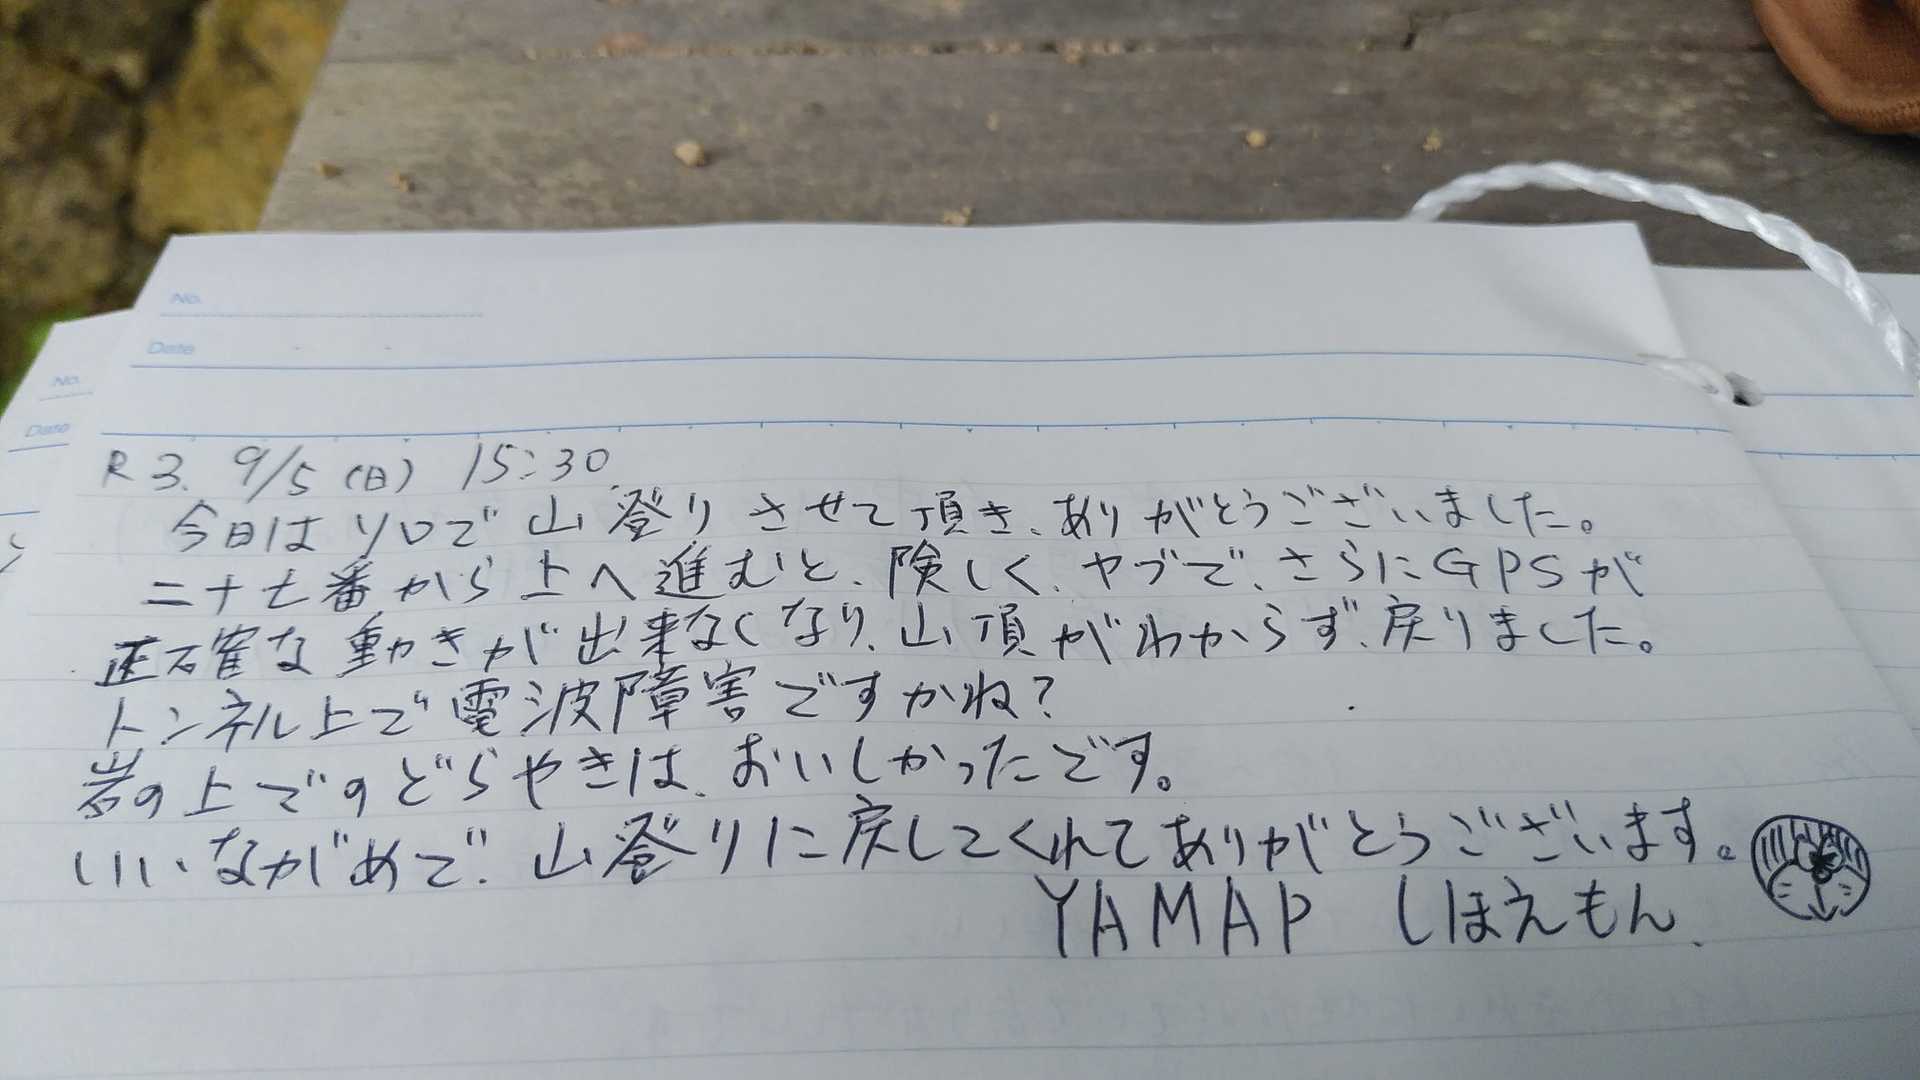 No.
Date
No.
Date
R3. 9/5(日) 15:30
今日はソロで山登りさせて頂き、ありがとうございました。
二十七番から上へ進むと、険しく、ヤブで、さらにGPSが
正確な動きが出来なくなり、山頂がわからず、戻りました。
トンネル上で電波障害ですかね?
岩の上でのどらやきは、おいしかったです。
いいながめで、山登りに戻してくれてありがとうございます。
YAMAP しほえもん